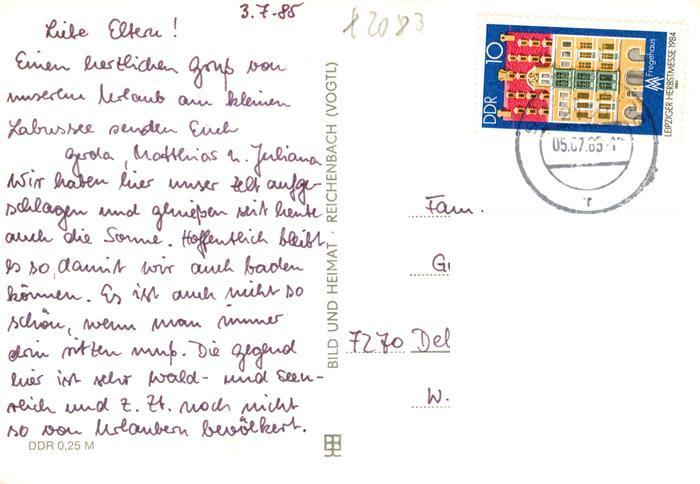 3.7.85
82083
Liebe Eltern!
Einen herzlichen Gruß von
unserem Urlaub am kleinen
Labussee senden Euch
Gerda, Matthias u. Juliana
Wir haben hier unser Zelt aufge-
schlagen und genießen seit heute
auch die Sonne. Hoffentlich bleibt
es so, damit wir auch baden
können. Es ist auch nicht so
schön, wenn man immer
drin sitzen muß. Die Gegend
hier ist sehr wald- und seen-
reich und z. Zt. noch nicht
so von Urlaubern bevölkert.
DDR 0,25 M
BILD UND HEIMAT · REICHENBACH (VOGTL)
DDR 10
Fregehaus
LEIPZIGER HERBSTMESSE 1984
05.07.85
Fam.
7270 Del
W.